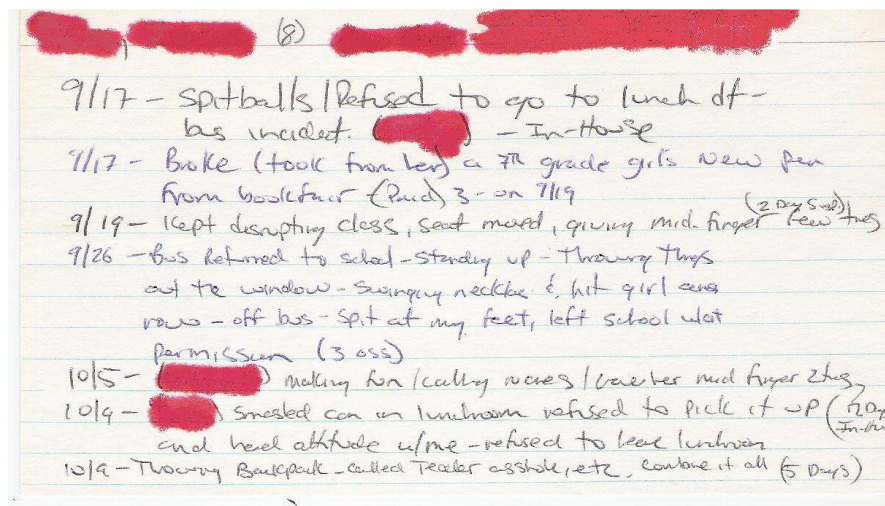 (8)
9/17 - Spitballs/Refused to go to lunch df-
bus incident. ( ) - In-House
9/17 - Broke (took from her) a 7th grade girls New pen
from bookfair (Paid) 3- on 9/19
9/19 - Kept disrupting class, seat moved, giving mid. finger few tmes (2 Day Susp)
9/26 - Bus Returned to school - Standing up - Throwing things
out the window - Swinging necklace & hit girl
rows - off bus - Spit at my feet, left school w/out
permission (3 oss)
10/5 - ( ) making fun/calling names/ mid finger 2 tmes,
10/9 - ( ) Smashed can in lunchroom refused to pick it up (
In-Hou
and had attitude w/me - refused to leave lunchroom
10/9 - Throwing Backpack - called Teacher asshole, etc. Combine it all (5 Days)